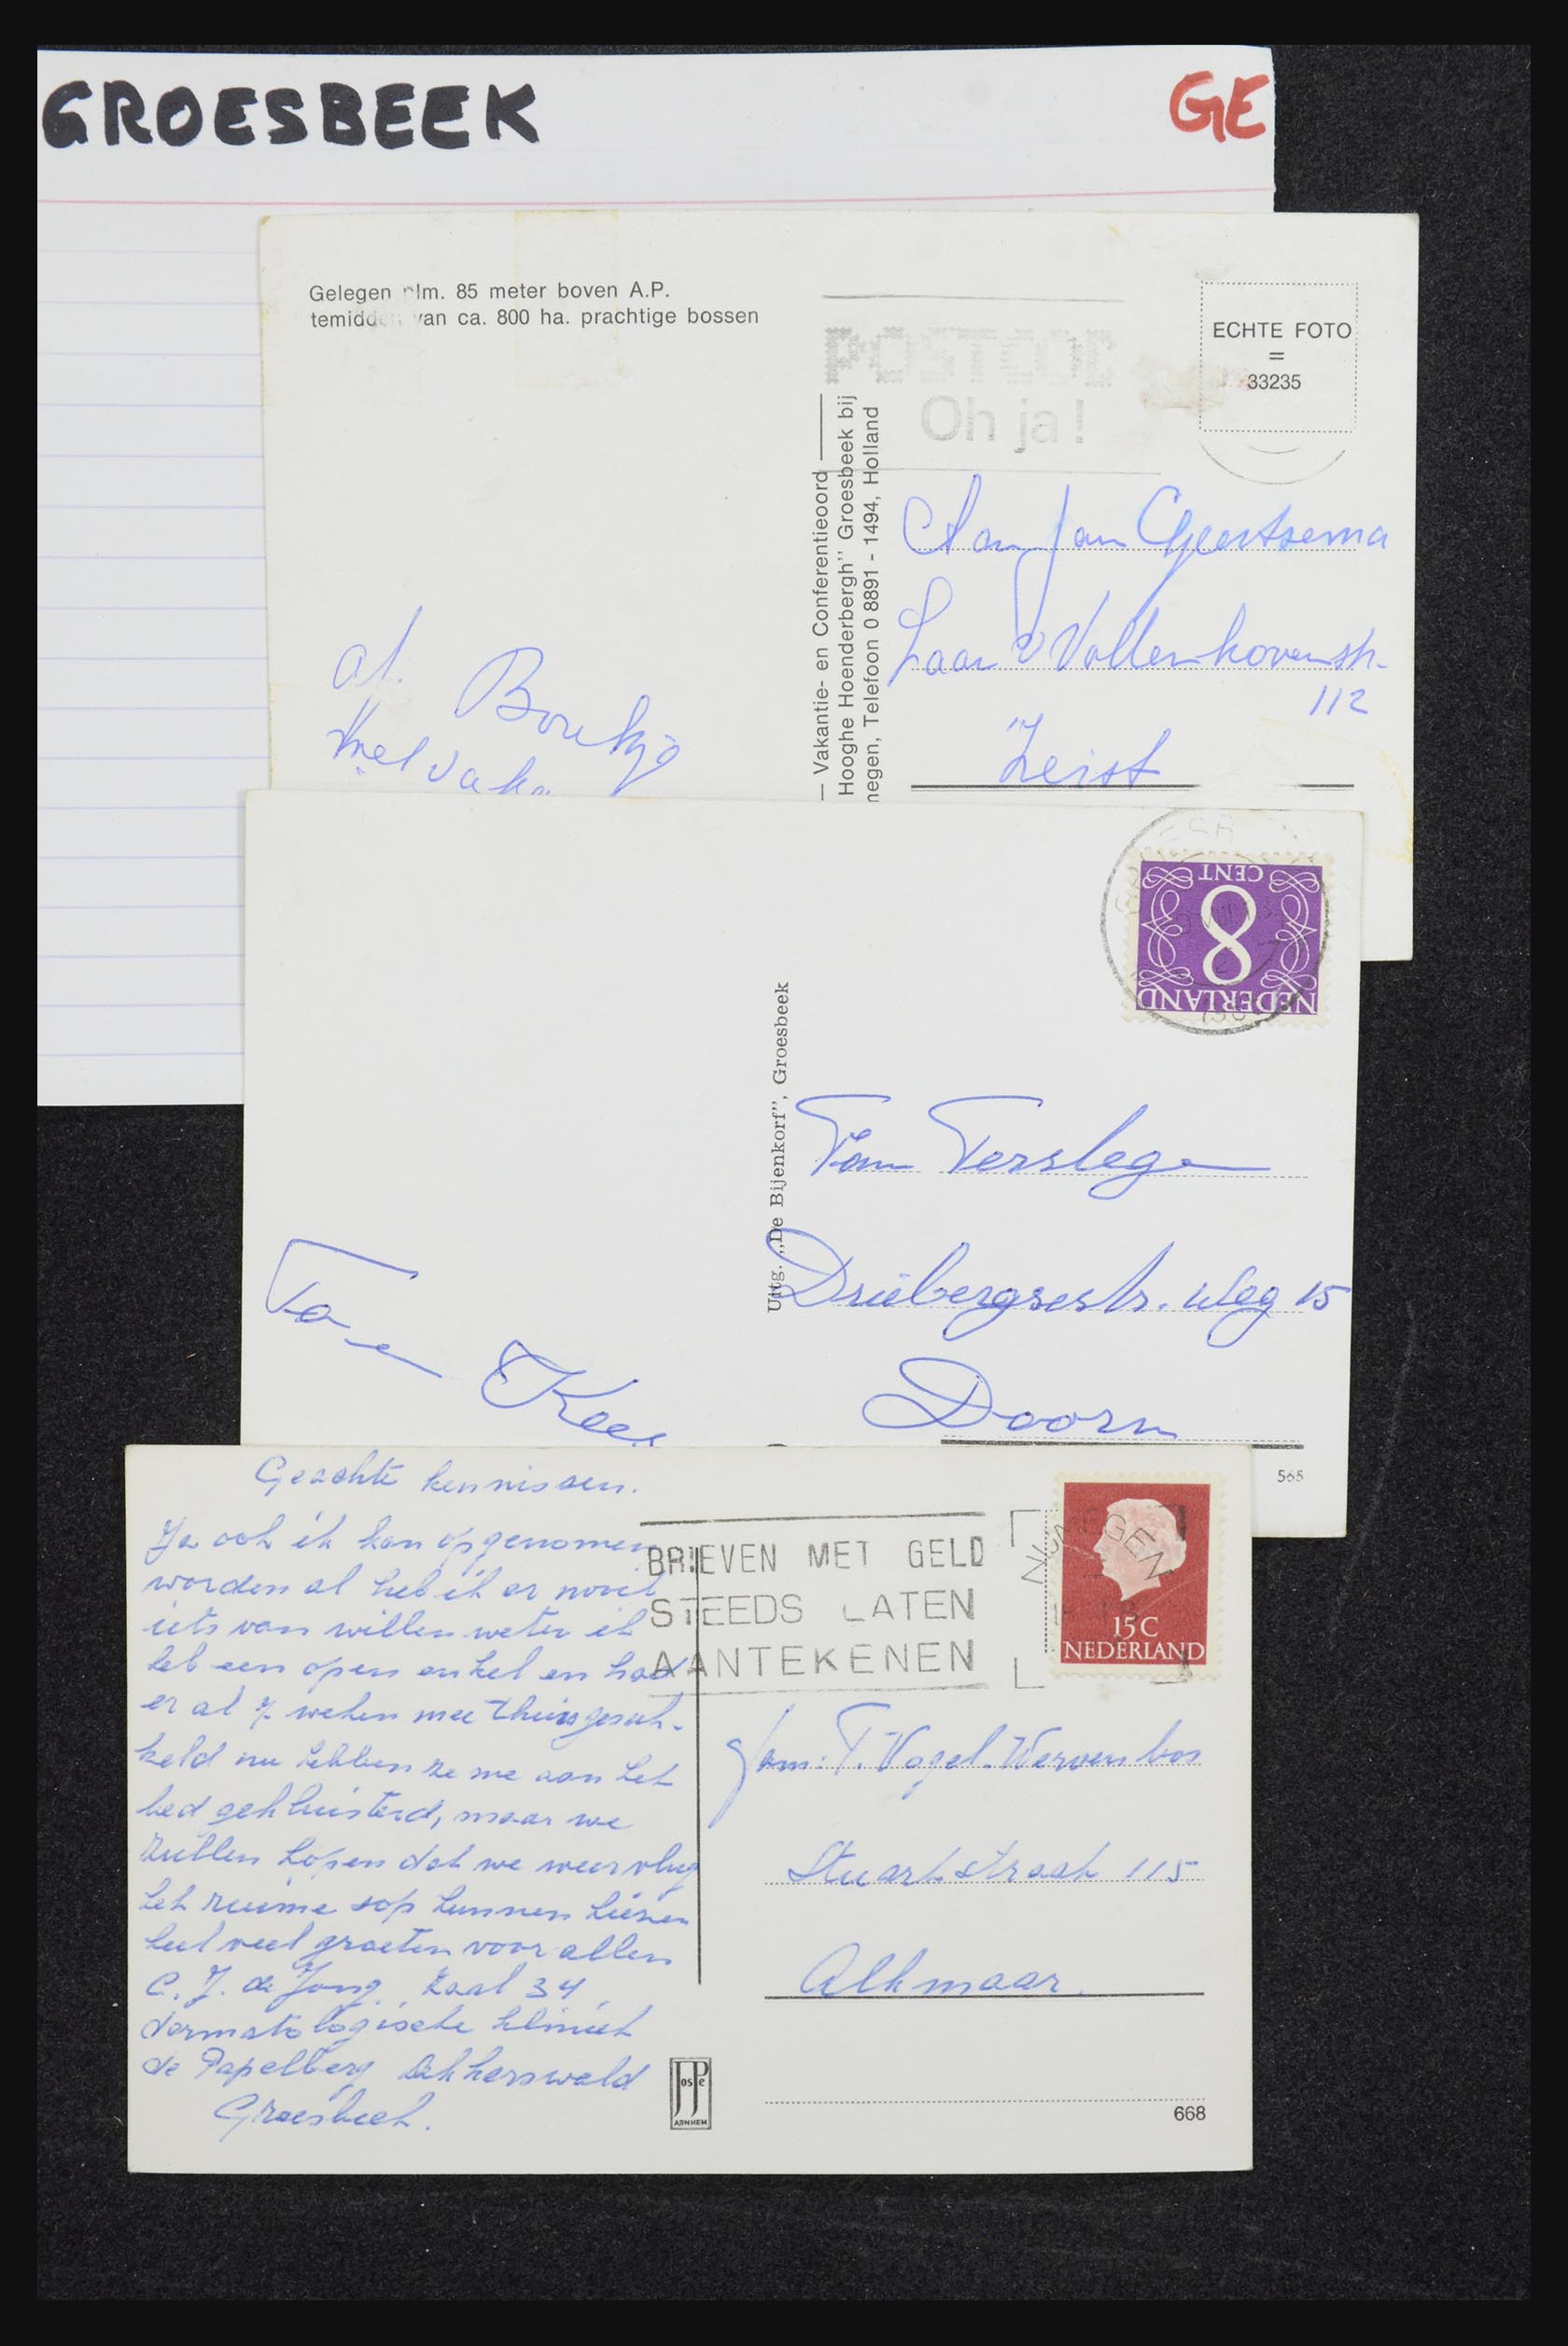 GROESBEEK
GE
Gelegen plm. 85 meter boven A.P.
temidden van ca. 800 ha. prachtige bossen
ECHTE FOTO
=
33235
POSTCODE
Oh ja!
— Vakantie- en Conferentieoord —
Hooghe Hoenderbergh" Groesbeek bij
megen, Telefoon 0 8891 - 1494, Holland
Aan Jan Geertsema
Laan v Vollenhovenstr.
112
Zeist
af. Boukje
CENT
8
NEDERLAND
Uitg. „De Bijenkorf", Groesbeek
Fam Terslege
Driebergsestr. weg 15
Doorn
Kees
565
Geachte kennissen.
Ja ook ik kan opgenomen
worden al heb ik er nooit
iets van willen weten ik
heb een open enkel en had
er al 7 weken mee thuis gesuk-
keld nu hebben ze me aan het
bed gekluisterd, maar we
zullen hopen dat we weer vlug
het ruime sop kunnen kiezen
heel veel groeten voor allen
C. J. de Jong. Zaal 34
dermatologische kliniek
de Papelberg Dekkerswald
Groesbeek.
BRIEVEN MET GELD
STEEDS LATEN
AANTEKENEN
NIJMEGEN
15C
NEDERLAND
Fam: T. Vogel-Wervenbos
Stuartstraat 115
Alkmaar.
JosPe
ARNHEM
668